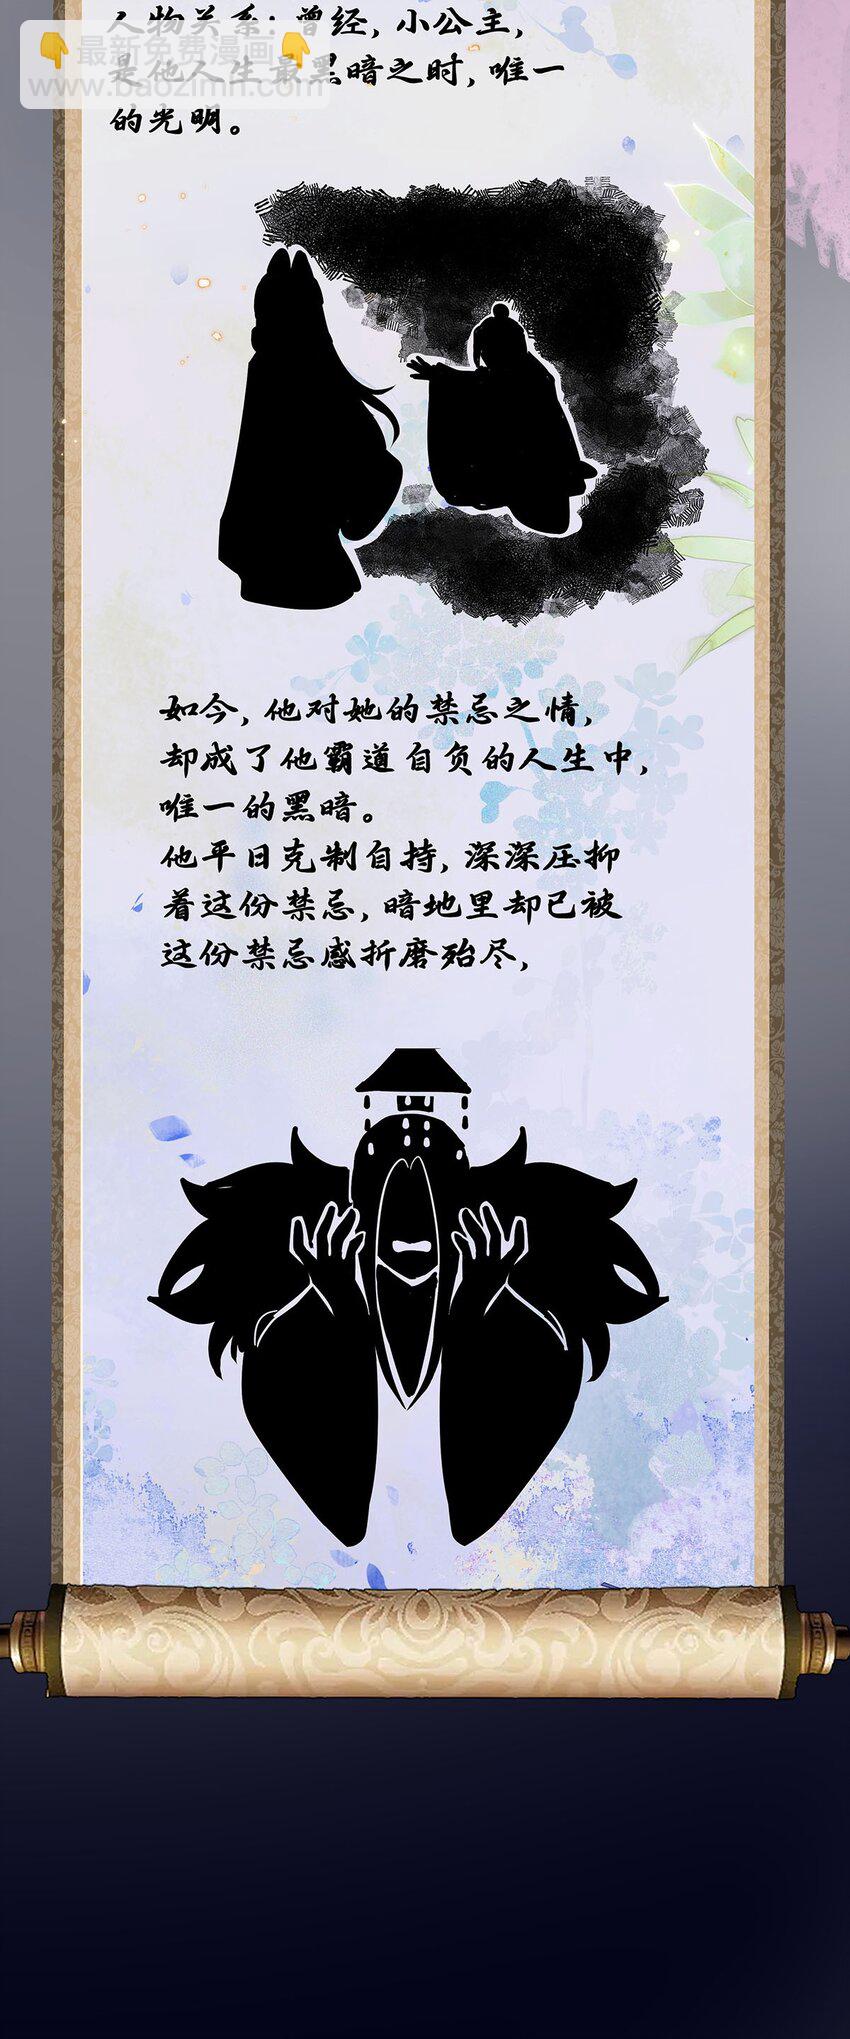 人物关系：曾经，小公主，
👇最新免费漫画👇
是他人生最黑暗之时，唯一
www.baozimhn.com
的光明。
如今，他对她的禁忌之情，
却成了他霸道自负的人生中，
唯一的黑暗。
他平日克制自持，深深压抑
着这份禁忌，暗地里却已被
这份禁忌感折磨殆尽，